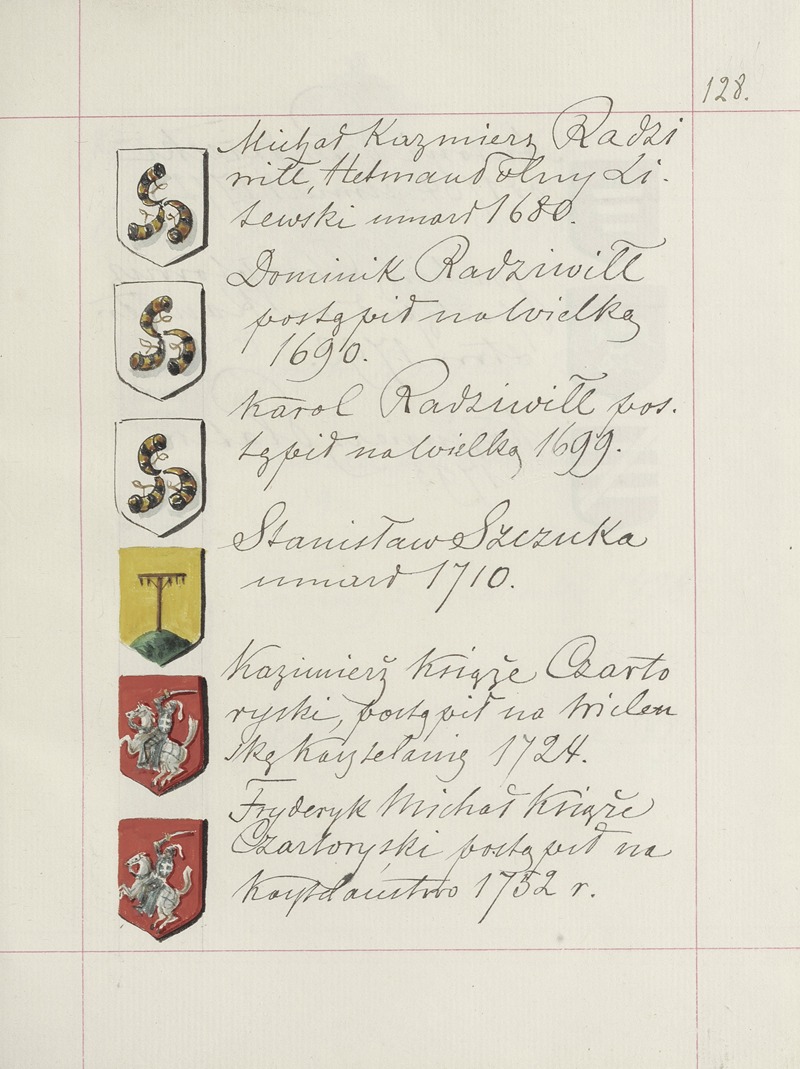 128.
Michał Kazmierz Radzi
wiłł, Hetman Polny Li-
tewski umarł 1680.
Dominik Radziwiłł
postąpił na Wielką
1690.
Karol Radziwiłł pos-
tąpił na Wielką 1699.
Stanisław Szczuka
umarł 1710.
Kazimierz Książe Czarto
ryski, postąpił na Wileń
ską Kasztelanię 1724.
Fryderyk Michał Książe
Czartoryski postąpił na
1752 r.